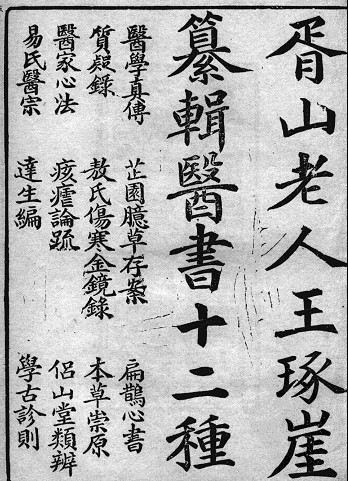 胥山老人王琢崖
纂輯醫書十二種
醫學真傳 芷園臆草存案 扁鵲心書
質疑錄 敖氏傷寒金鏡錄 本草崇原
醫家心法 痎瘧論疏 侶山堂類辨
易氏醫宗 達生編 學古診則